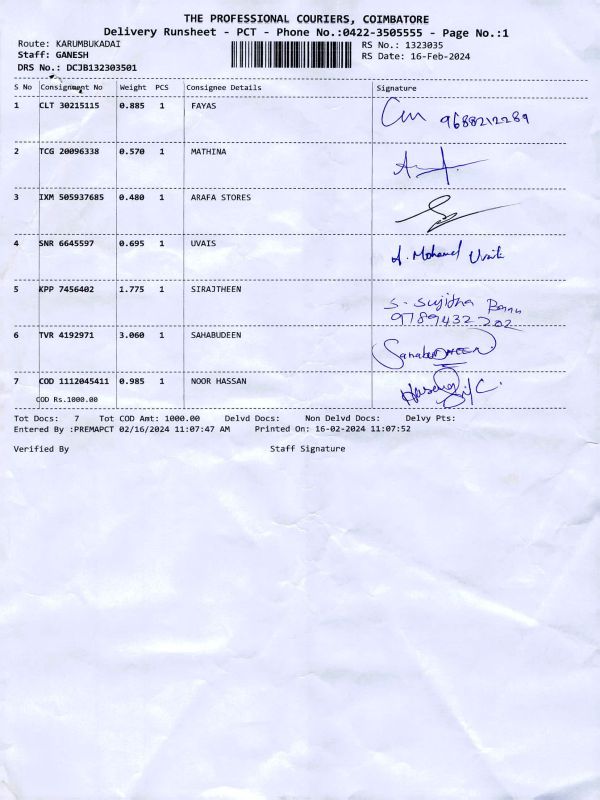 THE PROFESSIONAL COURIERS, COIMBATORE
Delivery Runsheet - PCT - Phone No.:0422-3505555 - Page No.:1
Route: KARUMBUKADAI RS No.: 1323035
Staff: GANESH RS Date: 16-Feb-2024
DRS No.: DCJB132303501
S No Consignment No Weight PCS Consignee Details Signature
1 CLT 30215115 0.885 1 FAYAS
9688212289
2 TCG 20096338 0.570 1 MATHINA
3 IXM 505937685 0.480 1 ARAFA STORES
4 SNR 6645597 0.695 1 UVAIS
A. Mohamed Uvais
5 KPP 7456402 1.775 1 SIRAJTHEEN
S. Sujitha Banu
9789432202
6 TVR 4192971 3.060 1 SAHABUDEEN
SahabuDHEEN
7 COD 1112045411 0.985 1 NOOR HASSAN
COD Rs.1000.00
Tot Docs: 7 Tot COD Amt: 1000.00 Delvd Docs: Non Delvd Docs: Delvy Pts:
Entered By :PREMAPCT 02/16/2024 11:07:47 AM Printed On: 16-02-2024 11:07:52
Verified By Staff Signature